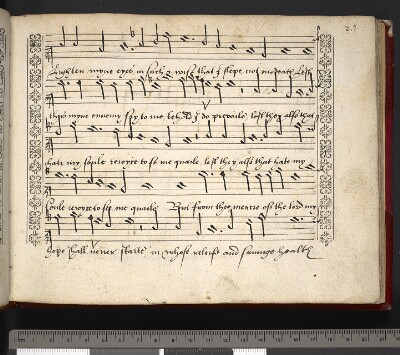 lighten myne eyes in such a wise that I slepe not in death Lest
this myne ennemy say to me behold I do prevaile, lest they also that
hate my soule reioyce to se me quaile, lest they also that hate my
soule reioyce to se me quaile But from the mercie of the lord my
hope shall never starte in whose releife and savinge health